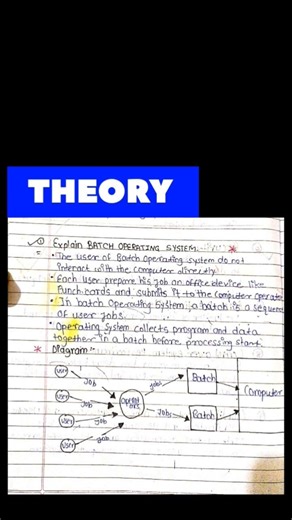 THEORY
① Explain BATCH OPERATING SYSTEM.
• The user of Batch Operating system do not
interact with the computer directly.
• Each user prepare his job an office device like
Punch cards and submits it to the computer operator
• In batch Operating System a batch is a sequence
of user jobs.
• Operating System collects program and data
together in a batch before processing start.
* Diagram:-
user
job
user
job
user
job
user
job
operators
jobs
Batch
Jobs
Batch
Computer